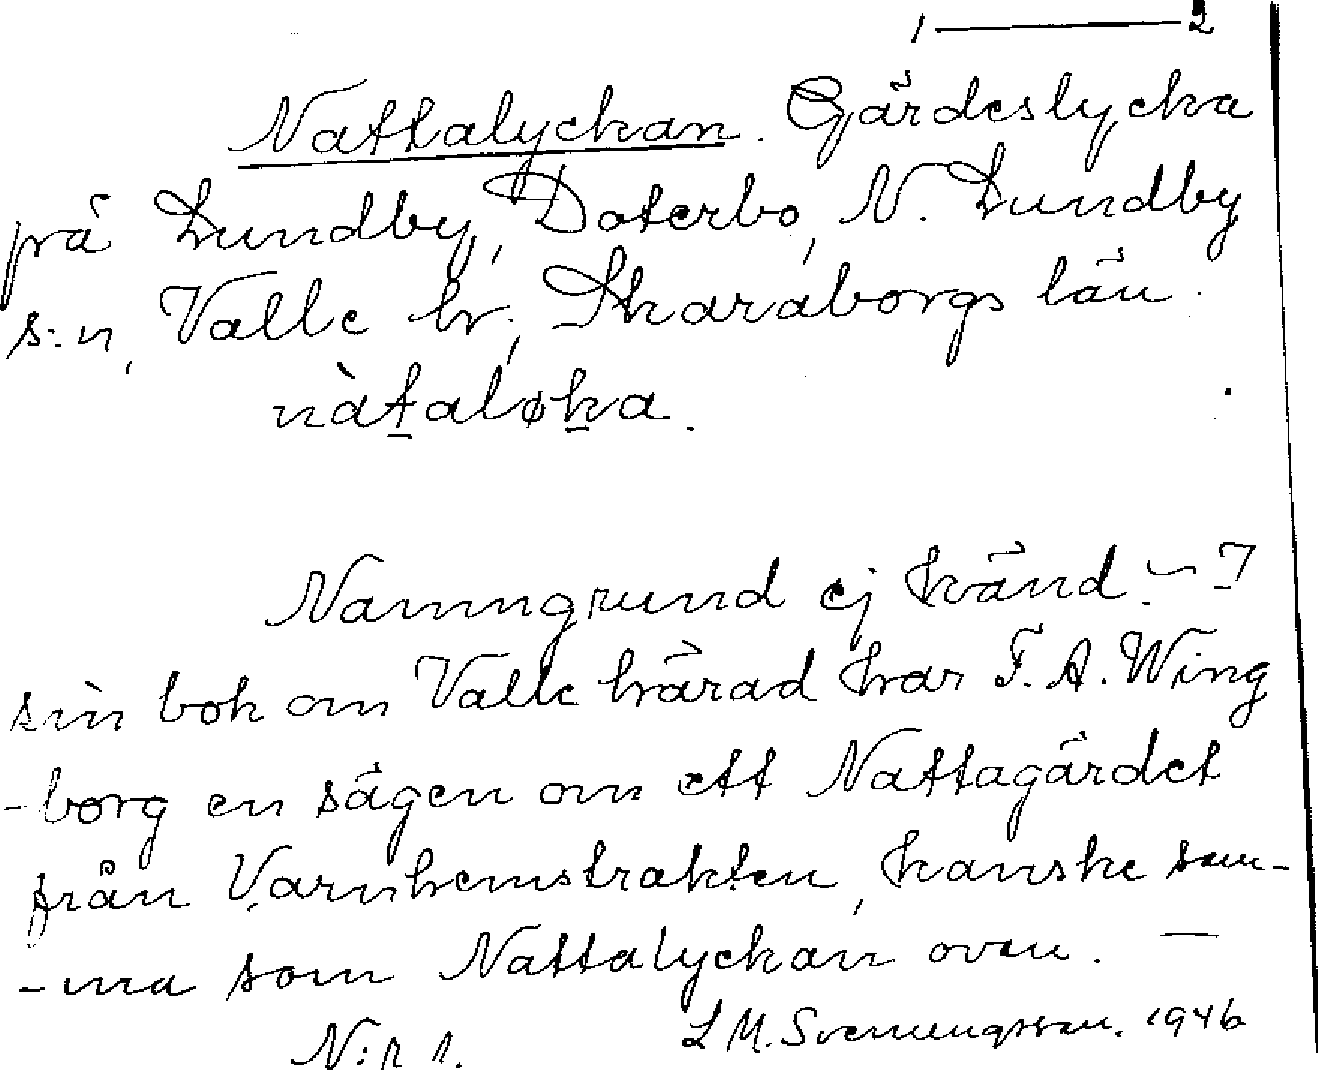 1 — 2
Nattalyckan. Gärdeslycka
på Lundby, Doterbo, N. Lundby
s:n, Valle hr, Skaraborgs län.
nàtaløka.
Namngrund ej känd. – I
sin bok om Valle härad har F. A. Wing
-borg en sägen om ett Nattagärdet
från Varnhemstrakten, kanske sam-
-ma som Nattalyckan ovan. —
N:r 1. L M. Svenungsson. 1946